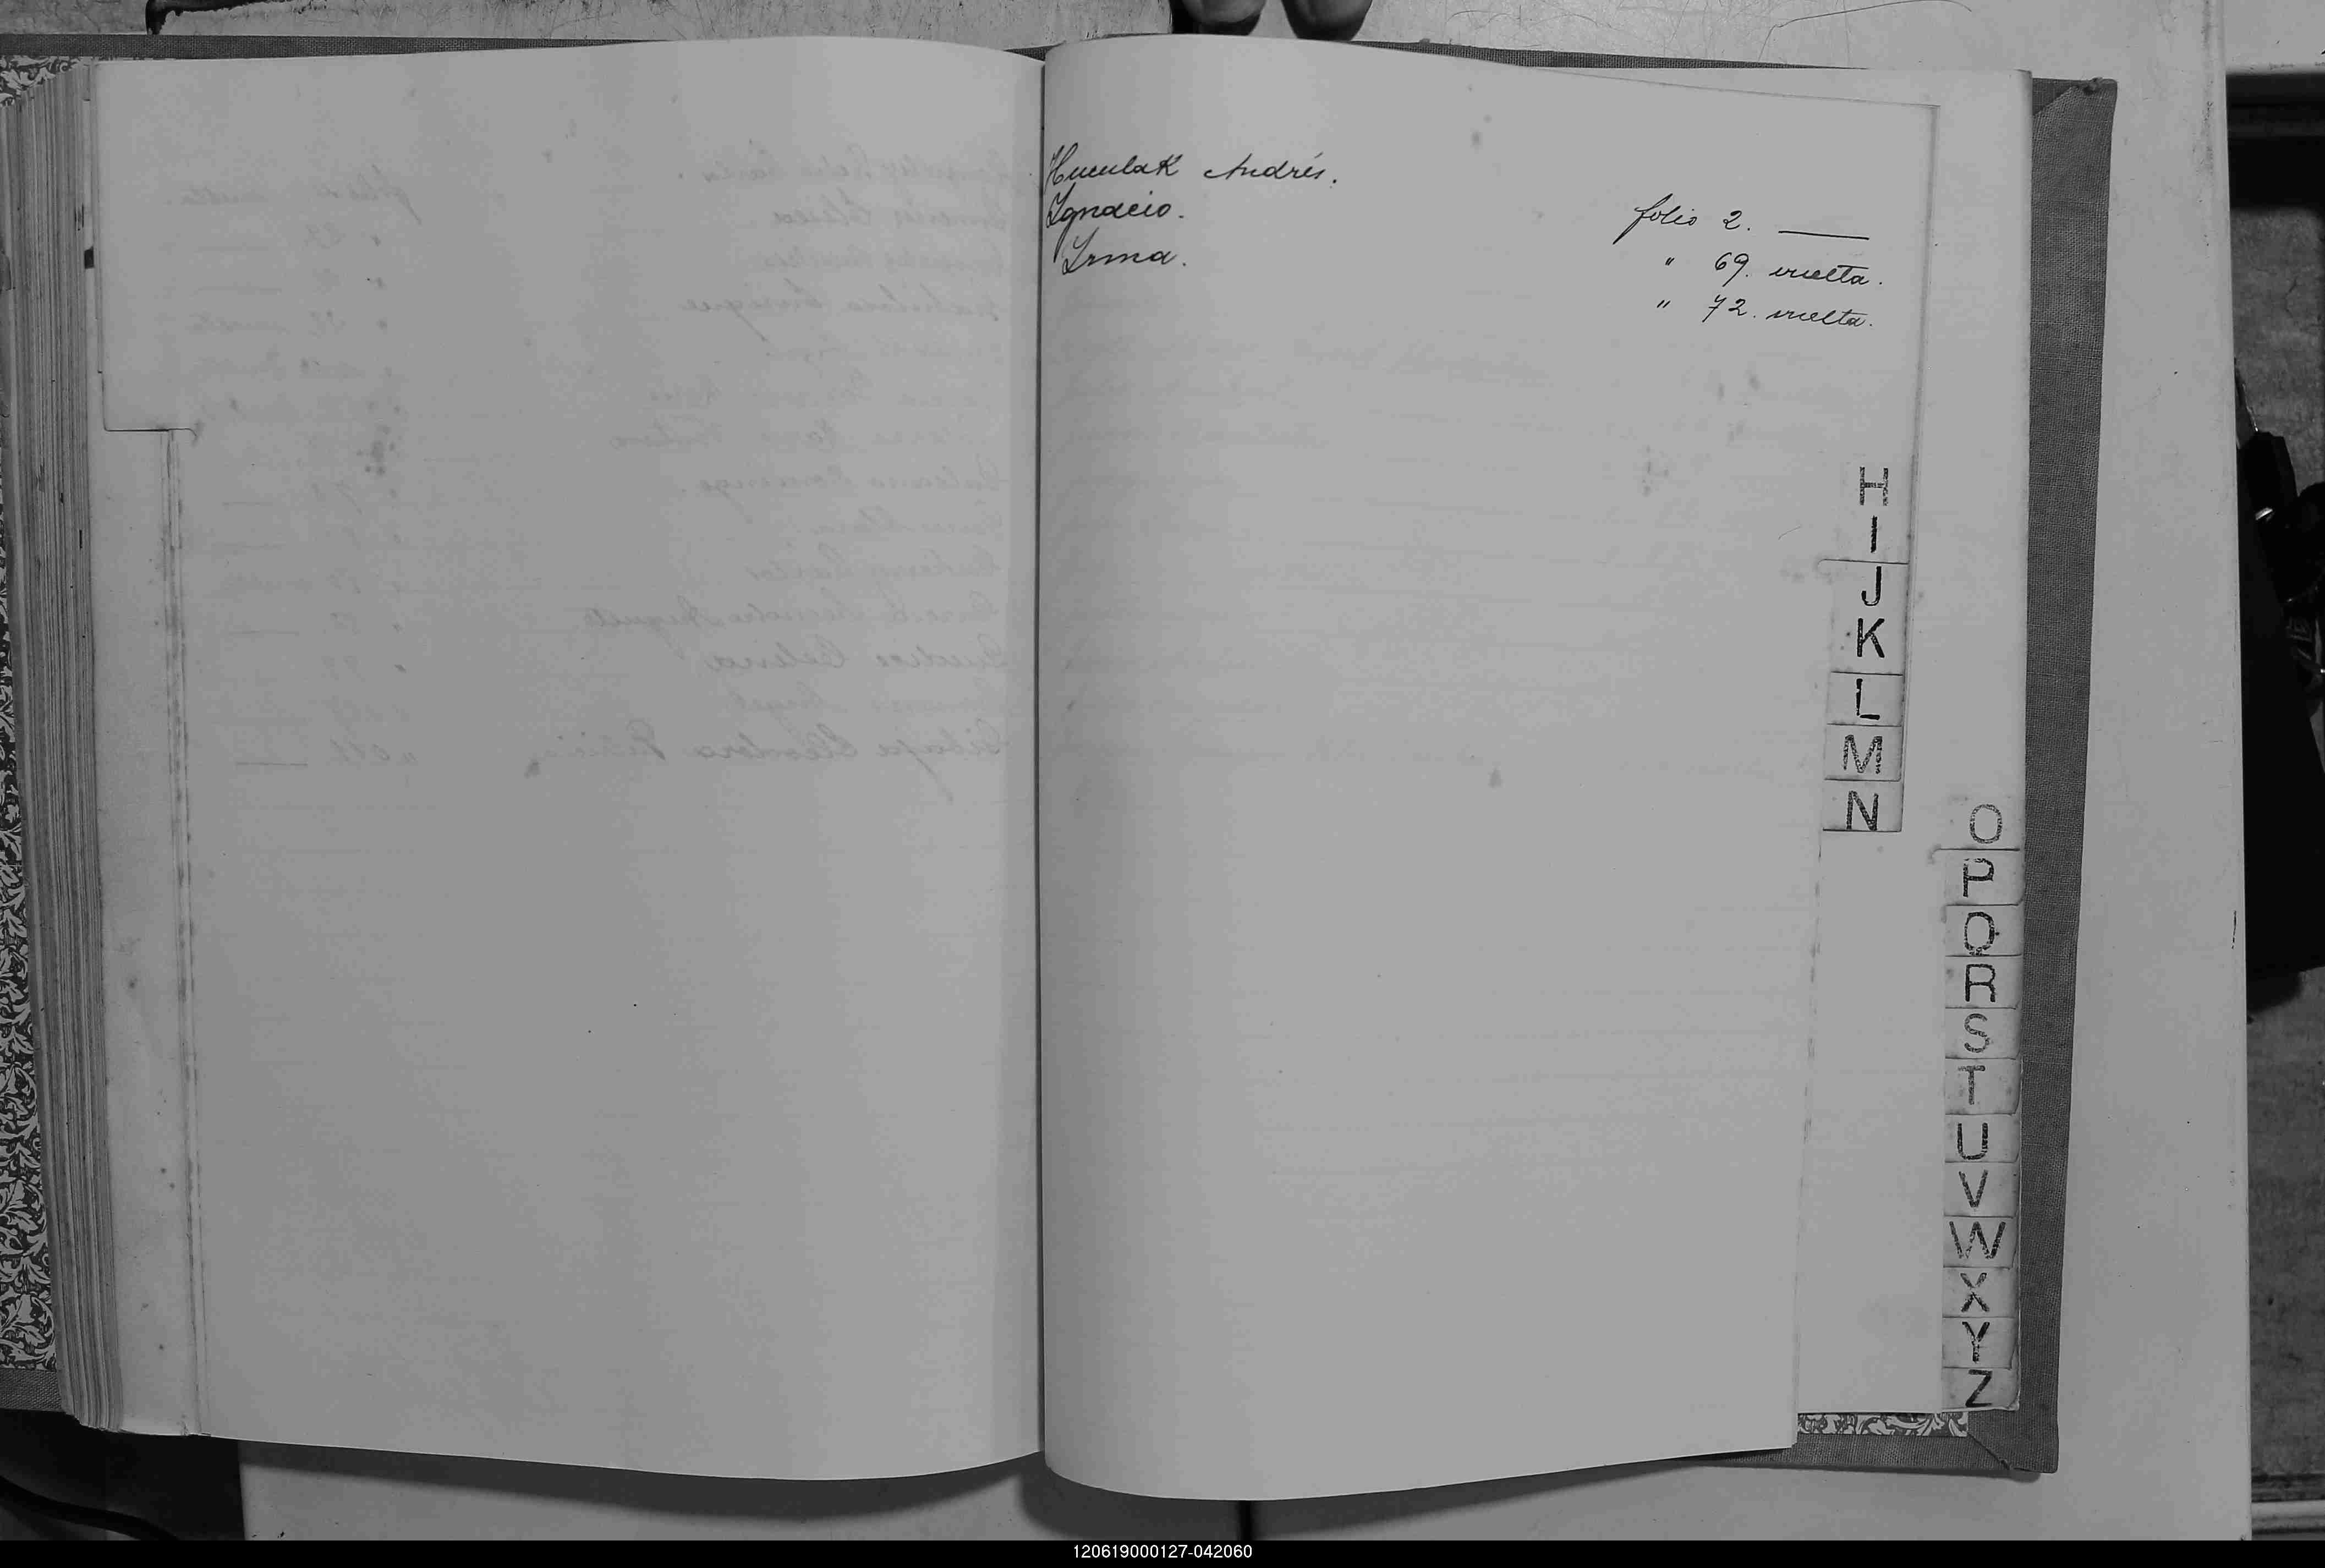 Huculak Andrés. folio 2. ____
Ignacio. " 69. vuelta.
Irma. " 72. vuelta.
H
I
J
K
L
M
N
O
P
Q
R
S
T
U
V
W
X
Y
Z
120619000127-042060